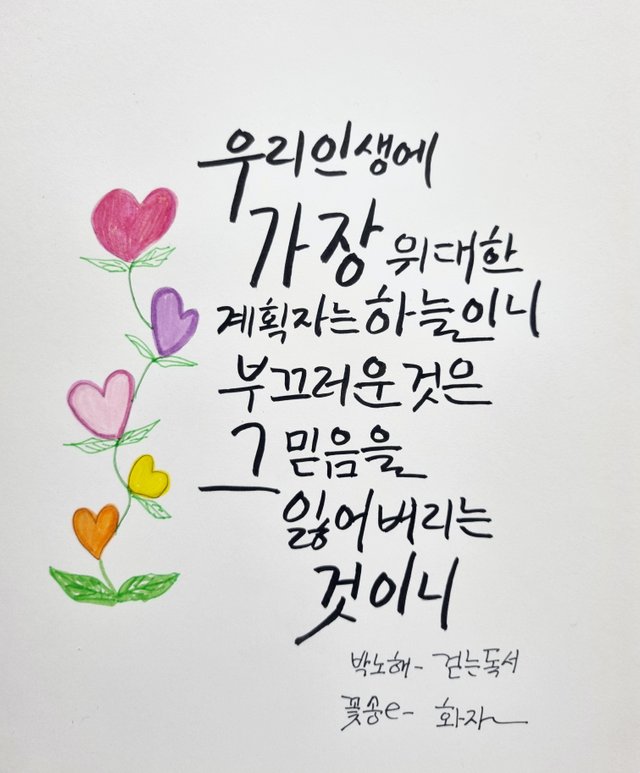 우리 인생에
가장 위대한
계획자는 하늘이니
부끄러운 것은
그 믿음을
잃어버리는
것이니
박노해- 걷는독서
꽃송e- 화자